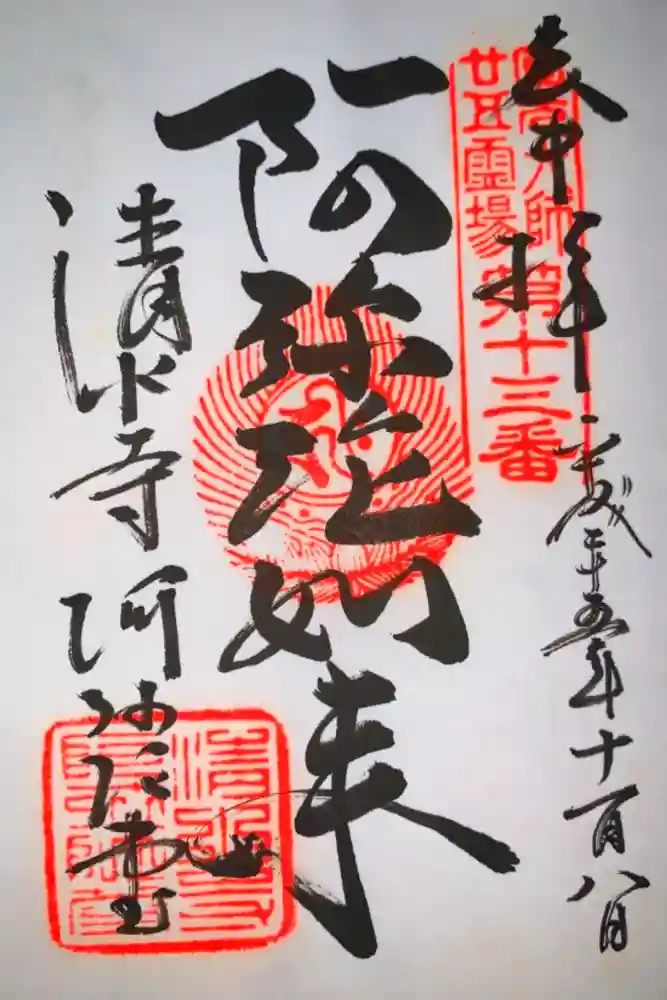 奉拝
平成二十五年十一月八日
圓光大師
廿五靈場
第十三番
阿弥陀如来
清水寺
阿弥陀堂